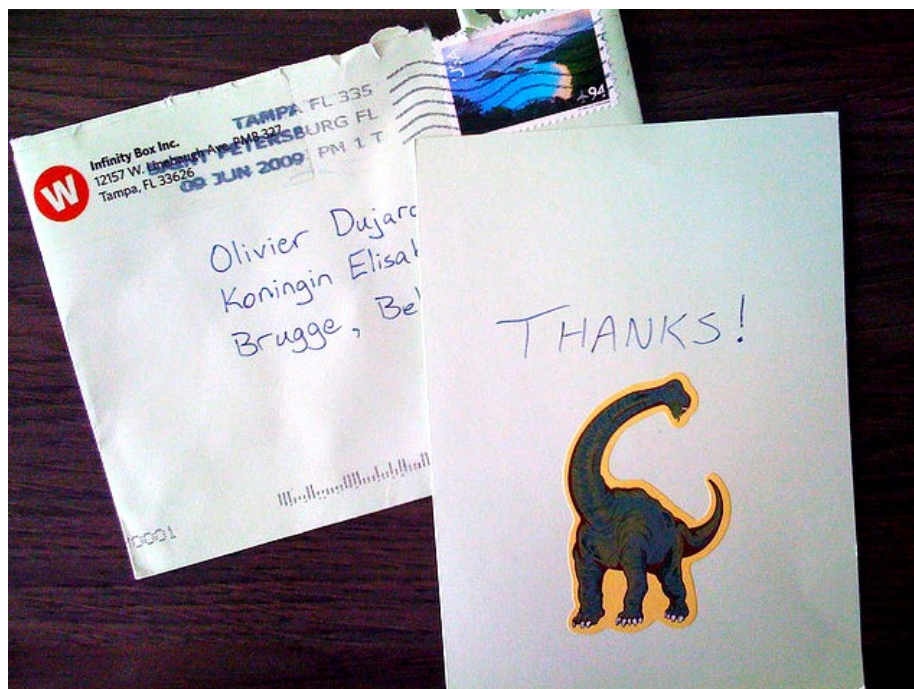 W
Infinity Box Inc.
12157 W. Linebaugh Ave, PMB 327
Tampa, FL 33626
TAMPA FL 335
SAINT PETERSBURG FL
09 JUN 2009 PM 1 T
USA
94
Olivier Dujard
Koningin Elisa
Brugge, Bel
0001
THANKS!